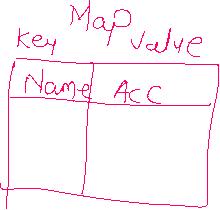 Map
Key Value
Name Acc